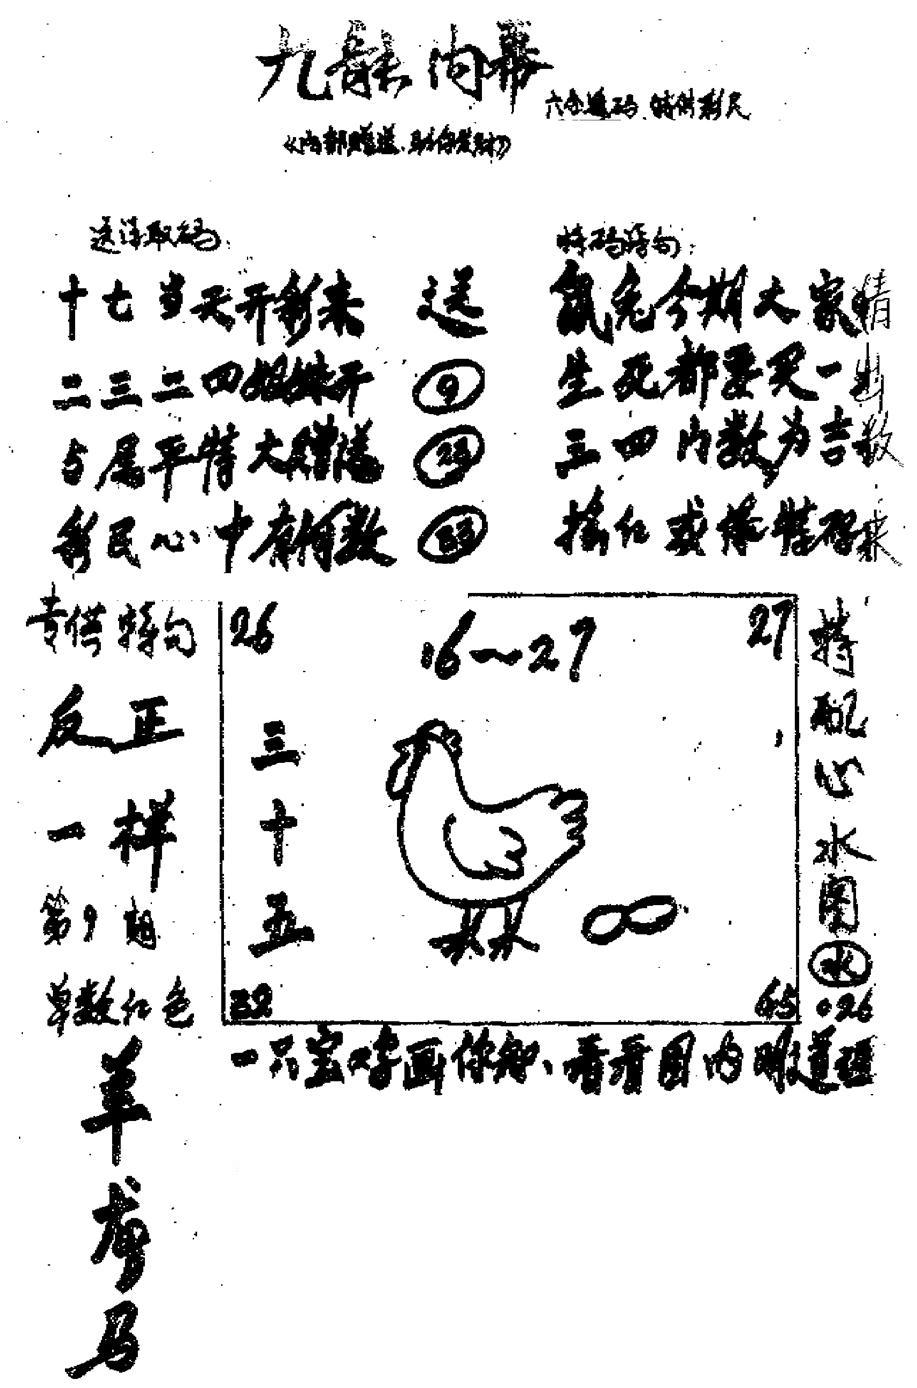 九龍内幕
六合透码 特供彩民
《内部赠送.助你发财》
送诗取码:
十七当天开新来 送
二三二四姐妹开 9
与尾平特大赠送 23
彩民心中有何数 33
特码诗句:
鼠兔今期大家猜
生死都要买一出
三四内数为吉数
摇红或 特码来
专供特句
反正
一样
第9期
单数红色
羊
龙
马
26
27
16~27
三十五
32
45
特配心水图
水
026
一只宝 字画你知、看看图内明道理